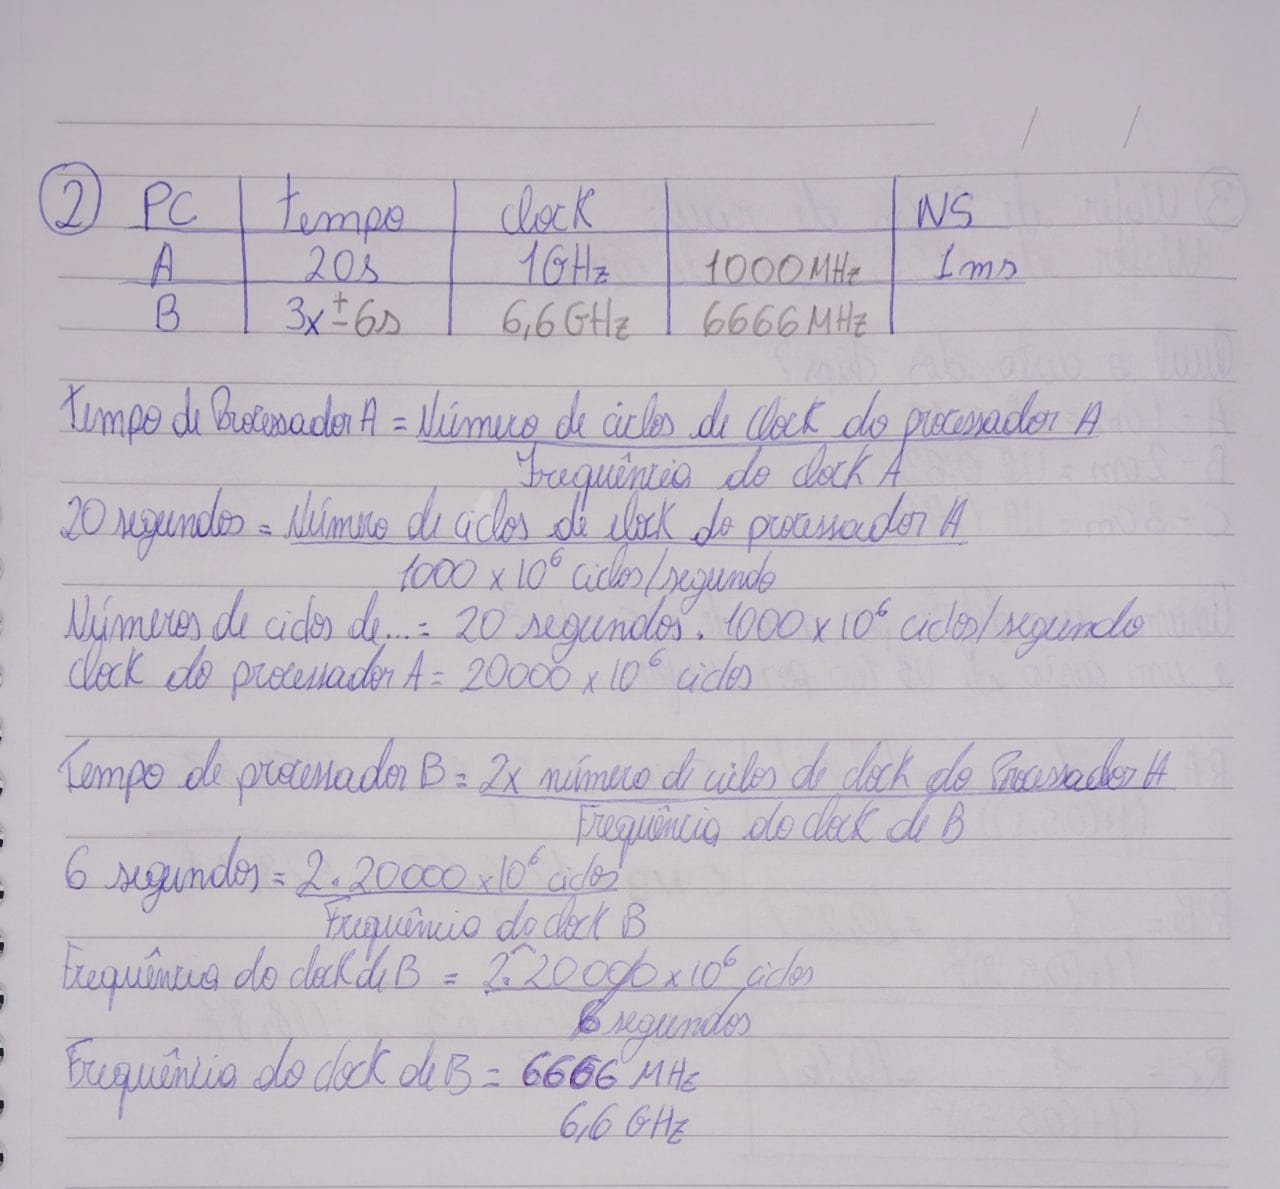 / /
2 PC tempo clock NS
A 20s 1GHz 1000MHz 1ms
B 3x ± 6s 6,6GHz 6666MHz
Tempo de Processador A = Número de ciclos de clock do processador A
Frequência do clock A
20 segundos = Número de ciclos de clock do processador A
1000 x 10⁶ ciclos/segundo
Números de ciclos de... = 20 segundos . 1000 x 10⁶ ciclos/segundo
clock do processador A = 20000 x 10⁶ ciclos
Tempo de processador B = 2x número de ciclos de clock do Processador A
Frequência do clock de B
6 segundos = 2 . 20000 x 10⁶ ciclos
Frequência do clock B
Frequência do clock de B = 2 . 20000 x 10⁶ ciclos
6 segundos
Frequência do clock de B = 6666 MHz
6,6 GHz